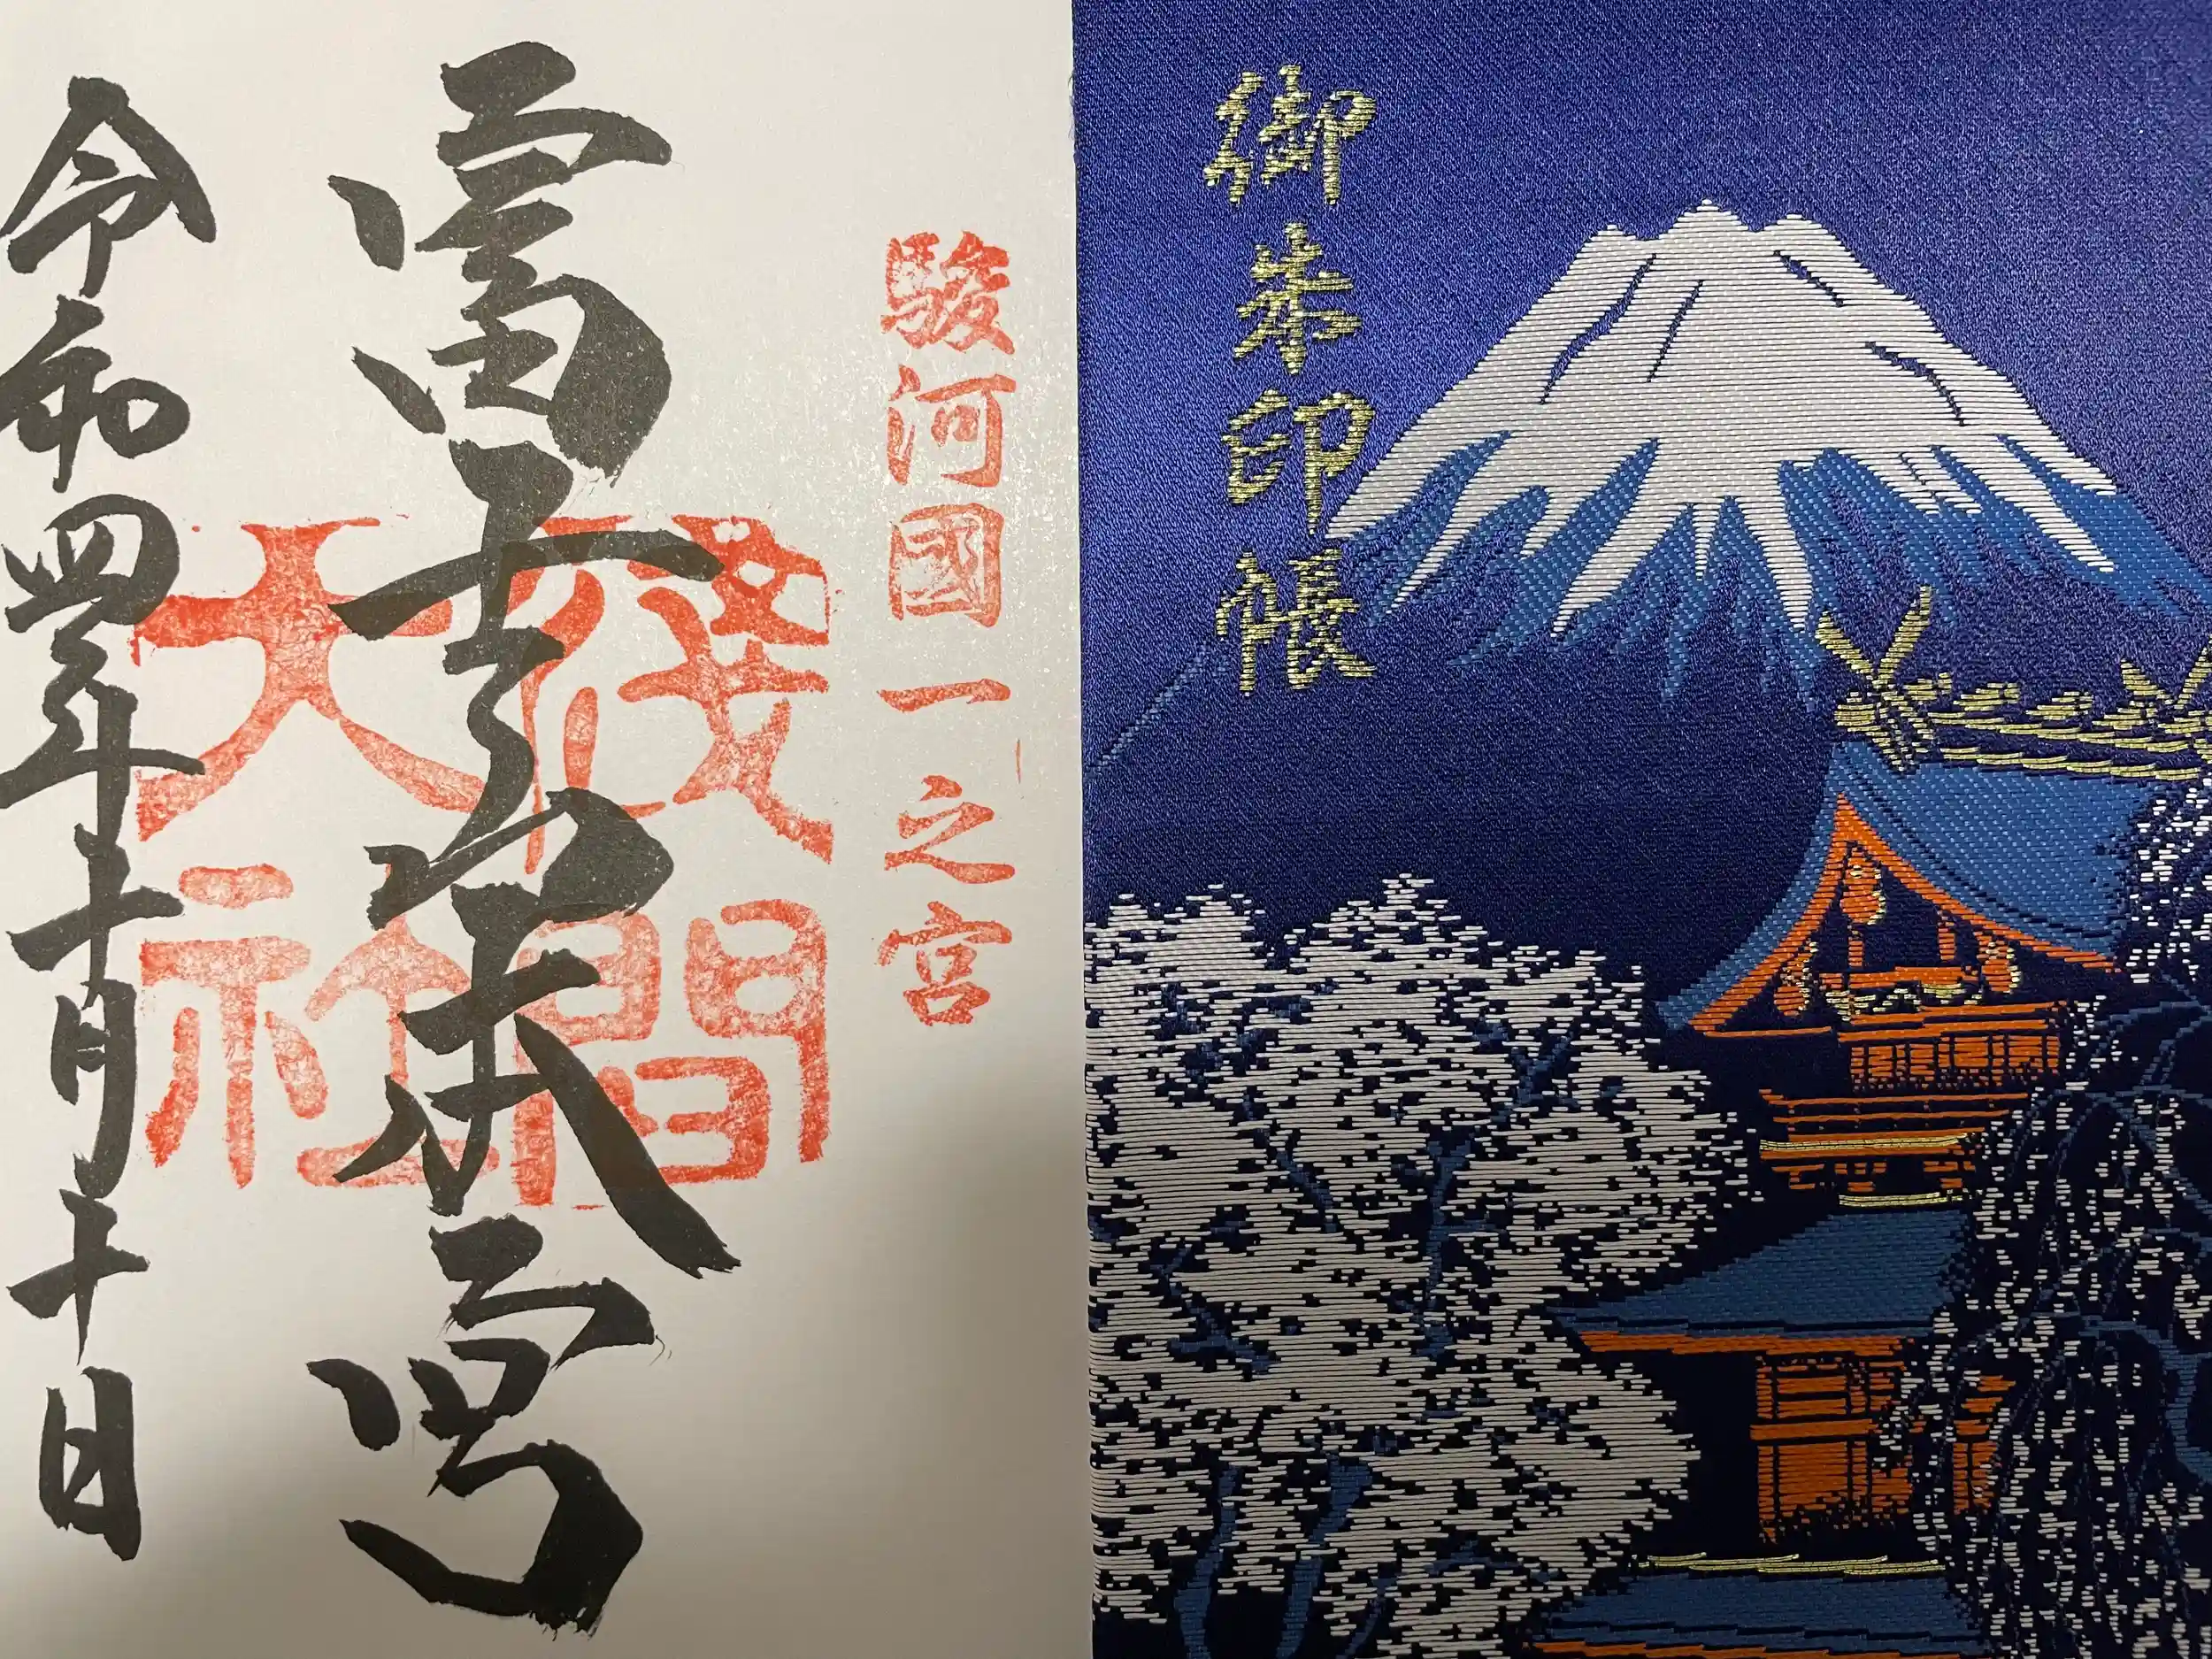 御朱印帳
駿河國一之宮
富士山本宮
淺間
大社
令和四年十月十日